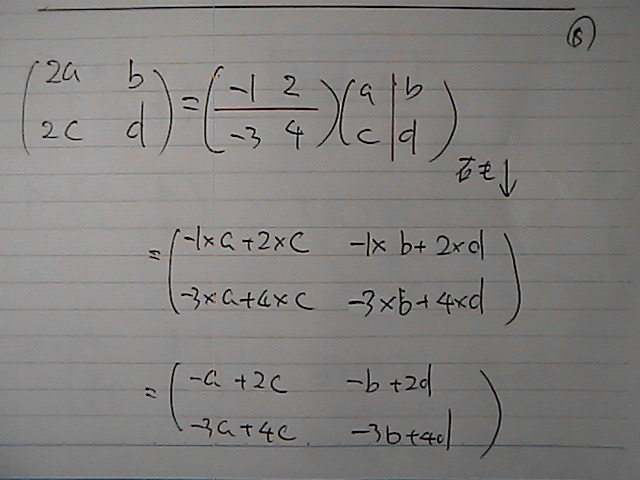 ⑧
(2a b
2c d) = (-1 2
-3 4)(a b
c d)
= (-1×a+2×c -1×b+2×d
-3×a+4×c -3×b+4×d)
= (-a+2c -b+2d
-3a+4c -3b+4d)